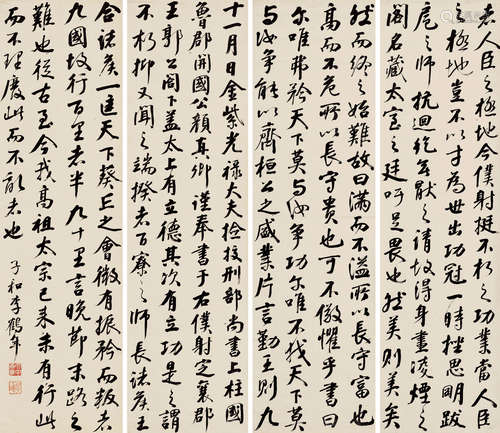 十一月日金紫光祿大夫檢校刑部尚書上柱國
魯郡開國公顏真卿謹奉書于右僕射定襄郡
王郭公閣下蓋太上有立德其次有立功是之謂
不朽抑又聞之端揆者百寮之師長諸侯王
者人臣之極地今僕射挺不朽之功業當人臣
之極地豈不以才為世出功冠一時挫思明跋
扈之師抗迴紇無厭之請故得身畫凌煙之
閣名藏太室之廷吁足畏也然美則美矣
然而終之始難故曰滿而不溢所以長守富也
高而不危所以長守貴也可不儆懼乎書曰
尔唯弗矜天下莫与汝爭功尔唯不伐天下莫
与汝爭能以齊桓公之盛業片言勤王則九
合諸侯一匡天下葵丘之會微有振矜而叛者
九國故行百里者半九十里言晚節末路之
難也從古至今我高祖太宗已來未有行此
而不理廢此而不亂者也
子和李鶴年